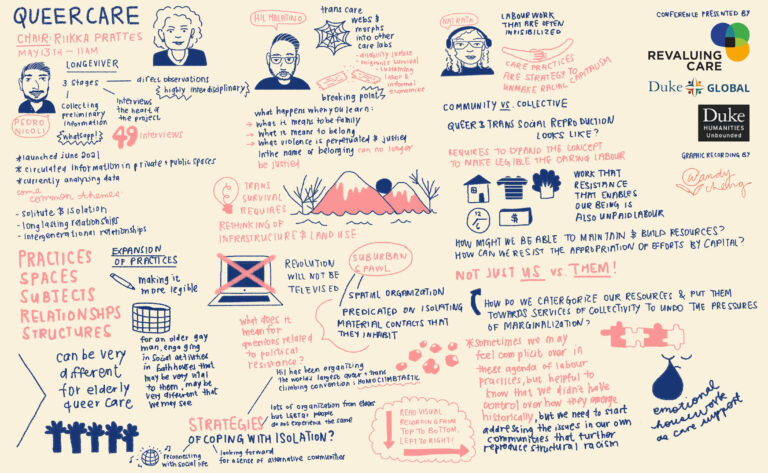 QUEER CARE
CHAIR: RIIKKA PRATTES
MAY 13TH — 11AM
PEDRO
NICOLI
LONGEVIVER
3 Stages
Collecting
preliminary
information
Whatsapp!
direct observations
highly interdisciplinary
Interviews
the heart of
the project
49 Interviews
* launched June 2021
* circulated information in private + public spaces
* currently analyzing data
some
common themes:
- solitude & isolation
- long lasting relationships
- intergenerational relationships
PRACTICES
SPACES
SUBJECTS
RELATIONSHIPS
STRUCTURES
EXPANSION
OF PRACTICES
making it
more legible
can be very
different
for elderly
queer care
for an older gay
man, engaging
in social activities
in bathhouses that
may be very vital
to them, may be
very different that
we may see
STRATEGIES
OF COPING WITH ISOLATION?
reconnecting
with social life
looking forward
for a sense of alternative communities
lots of organization from elders
but LGBTQI+ people
do not experience the same
HIL MALATINO
trans care
webs &
morphs
into other
care labs
- disability justice
- migrants survival
- sustaining
labor &
informal
economies
breaking point
what happens when you learn:
→ what it means to be family
→ what it means to belong
→ what violence is perpetuated & justified
in the name of belonging can no longer
be justified
TRANS
SURVIVAL
REQUIRES
RETHINKING OF
INFRASTRUCTURE & LAND USE
REVOLUTION
WILL NOT BE
TELEVISED
SUBURBAN
SPAWL
SPATIAL ORGANIZATION
PREDICATED ON ISOLATING
MATERIAL CONTACTS THAT
THEY INHABIT
what does it
mean for
questions related
to political
resistance?
Hil has been organizing
the worlds largest queer + trans
climbing convention: HOMOCLIMBTASTIC
READ VISUAL
RECORDING FROM
TOP TO BOTTOM,
LEFT TO RIGHT!
LABOUR WORK
THAT ARE OFTEN
INVISIBILIZED
CARE PRACTICES
ARE STRATEGY TO
UNMAKE RACIAL CAPITALISM
COMMUNITY VS. COLLECTIVE
QUEER & TRANS SOCIAL REPRODUCTION
LOOKS LIKE?
REQUIRES TO EXPAND THE CONCEPT
TO MAKE LEGIBLE THE CARING LABOUR
12/6
$
WORK THAT
RESISTANCE
THAT ENABLES
OUR BEING IS
ALSO UNPAID LABOUR
HOW MIGHT WE BE ABLE TO MAINTAIN & BUILD RESOURCES?
HOW CAN WE RESIST THE APPROPRIATION OF EFFORTS BY CAPITAL?
NOT JUST US VS. THEM!
HOW DO WE CATERGORIZE OUR RESOURCES & PUT THEM
TOWARDS SERVICES OF COLLECTIVITY TO UNDO THE PRESSURES
OF MARGINALIZATION?
* Sometimes we may
feel complicit over in
these agenda of labour
practices, but helpful to
know that we didn't have
control over how they emerge
historically, but we need to start
addressing the issues in our own
communities that further
reproduce structural racism
emotional
housework
as care support
CONFERENCE PRESENTED BY
REVALUING
CARE
Duke GLOBAL
Duke
HUMANITIES
Unbounded
GRAPHIC RECORDING BY
@andy
cheng